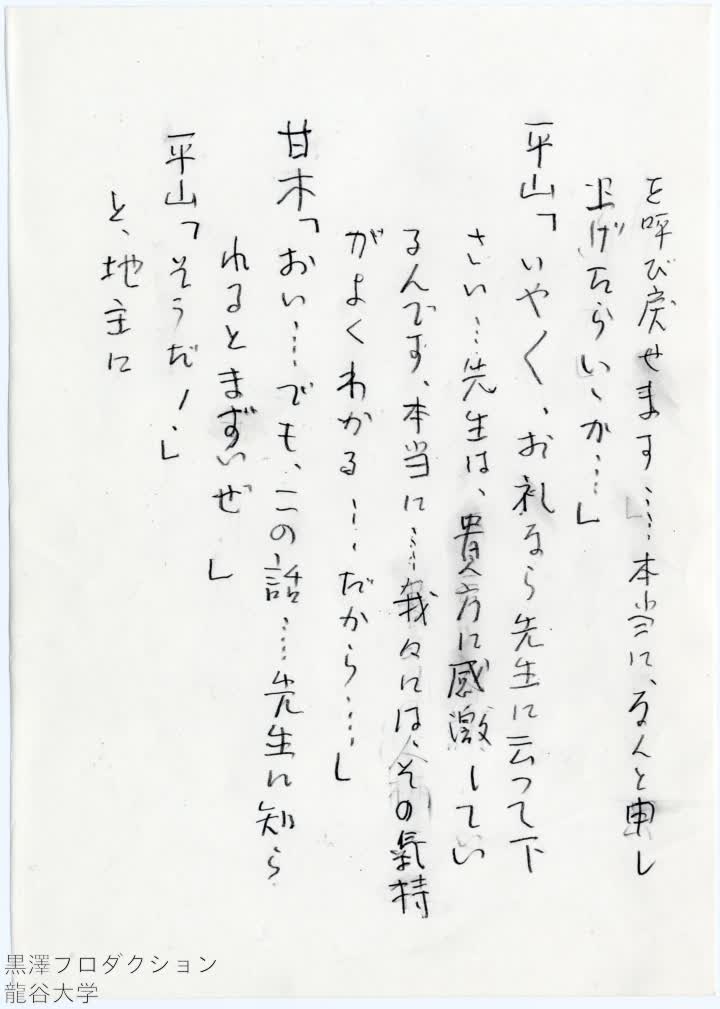 を呼び戻せます……本当に、なんと申し
上げたらいゝか…」
平山「いや〳〵、お礼なら先生に云つて下
さい…先生は、貴方に感激してい
るんです、本当に……我々には、その氣持
がよくわかる……だから……」
甘木「おい……でも、この話……先生に知ら
れるとまずいぜ」
平山「そうだ！」
と、地主に
黒澤プロダクション
龍谷大学